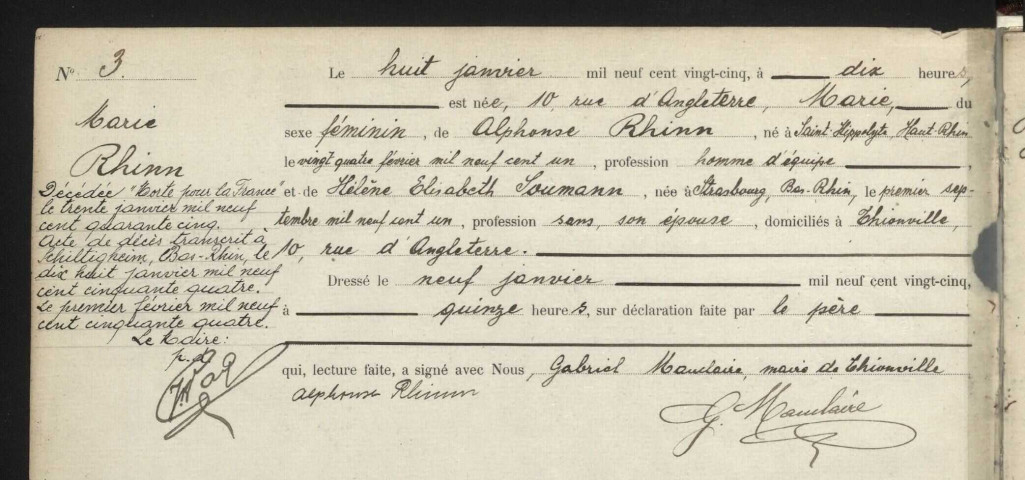 N° 3.
Marie
Rhinn
Décédée "Morte pour la France"
le trente janvier mil neuf
cent quarante cinq.
Acte de décès transcrit à
Schiltigheim, Bas-Rhin, le
dix huit janvier mil neuf
cent cinquante quatre.
Le premier février mil neuf
cent cinquante quatre.
Le Maire:
Le huit janvier mil neuf cent vingt-cinq, à dix heures,
est née, 10, rue d'Angleterre, Marie, du
sexe féminin, de Alphonse Rhinn, né à Saint-Hippolyte, Haut-Rhin
le vingt quatre février mil neuf cent un, profession homme d'équipe,
et de Hélène Elisabeth Soumann, née à Strasbourg, Bas-Rhin, le premier sep-
tembre mil neuf cent un, profession sans, son épouse, domiciliés à Thionville,
10, rue d'Angleterre.
Dressé le neuf janvier mil neuf cent vingt-cinq,
à quinze heures, sur déclaration faite par le père
qui, lecture faite, a signé avec Nous, Gabriel Mauclaire, maire de Thionville
alphonse Rhinn
G. Mauclaire